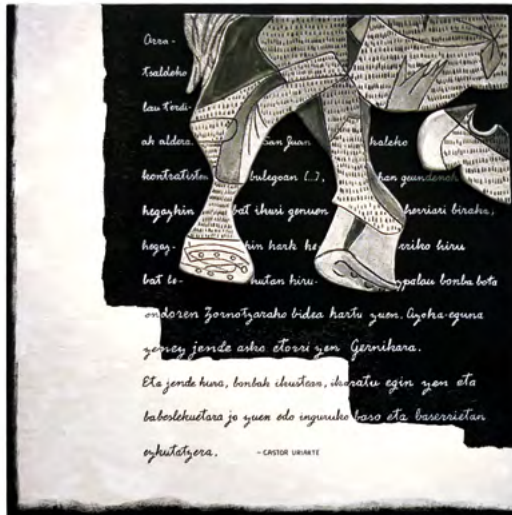 Arra-
tsaldeko
lau t'erdi-
ak aldera, San Juan kaleko
kontratisten bulegoan (...), han geundenok
hegazkin bat ikusi genuen herriari biraka,
hegaz- kin hark he- rriko hiru
bat le- kutan hiru- zpalau bonba bota
ondoren Zornotzarako bidea hartu zuen. Azoka-eguna
zenez jende asko etorri zen Gernikara.
Eta jende hura, bonbak ikustean, ikaratu egin zen eta
babeslekuetara jo zuen edo inguruko baso eta baserrietan
ezkutatzera. – CASTOR URIARTE